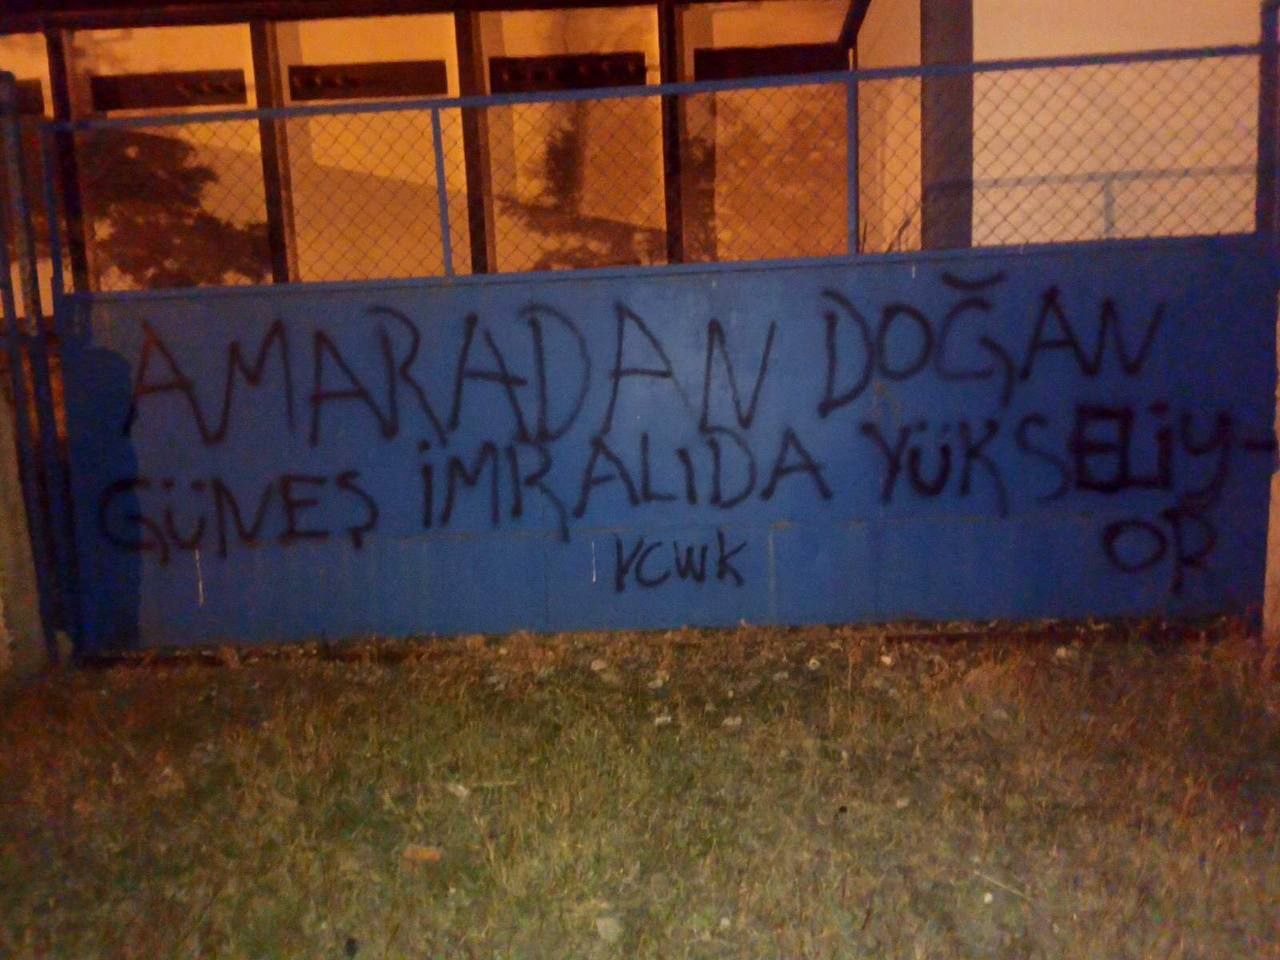 AMARADAN DOĞAN
GÜNEŞ İMRALIDA YÜKSELİY-
OR
YCWK